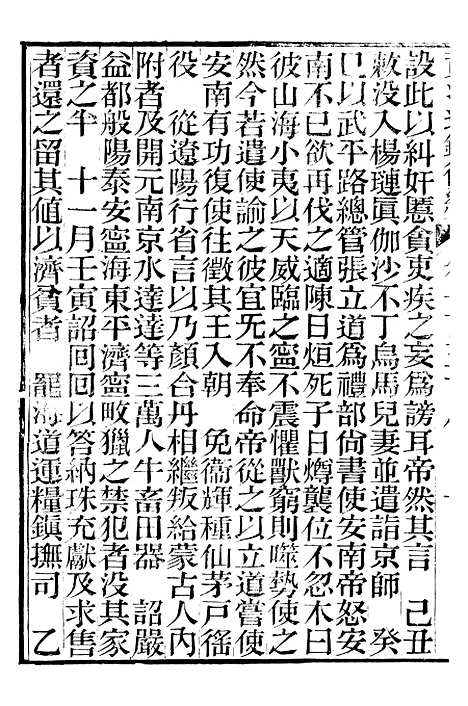 設此以糾奸慝貪吏疾之妄爲謗耳帝然其言　己丑
敕没入楊璉眞伽沙不丁烏馬兒妻並遣詣京師　癸
巳以武平路總管張立道爲禮部尙書使安南帝怒安
南不已欲再伐之適陳日烜死子日燇襲位不忽木曰
彼山海小夷以天威臨之寧不震懼獸窮則噬勢使之
然今若遣使諭之彼宜无不奉命帝從之以立道嘗使
安南有功復使往徵其王入朝　免衞輝種仙茅戸徭
役　從遼陽行省言以乃顏合丹相繼叛給蒙古人内
附者及開元南京水達達等三萬人牛畜田器　詔嚴
益都般陽泰安寧海東平濟寧畋獵之禁犯者没其家
資之半　十一月壬寅詔回回以答納珠充獻及求售
者還之留其値以濟貧者　罷海道運糧鎭撫司　乙